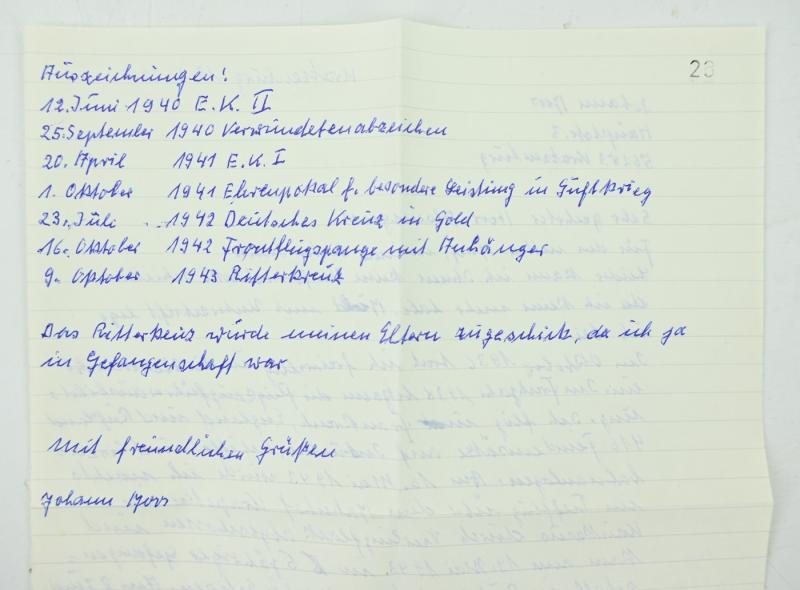 Auszeichnungen!
23
12. Juni 1940 E.K. II
25. September 1940 Verwundetenabzeichen
20. April 1941 E.K. I
1. Oktober 1941 Ehrenpokal f. besondere Leistung in Luftkrieg
23. Juli 1942 Deutsches Kreuz in Gold
16. Oktober 1942 Frontflugspange mit Anhänger
9. Oktober 1943 Ritterkreuz
Das Ritterkeuz wurde meinen Eltern zugeschikt, da ich ja
in Gefangenschaft war
Mit freundlichen Grüßen
Johann